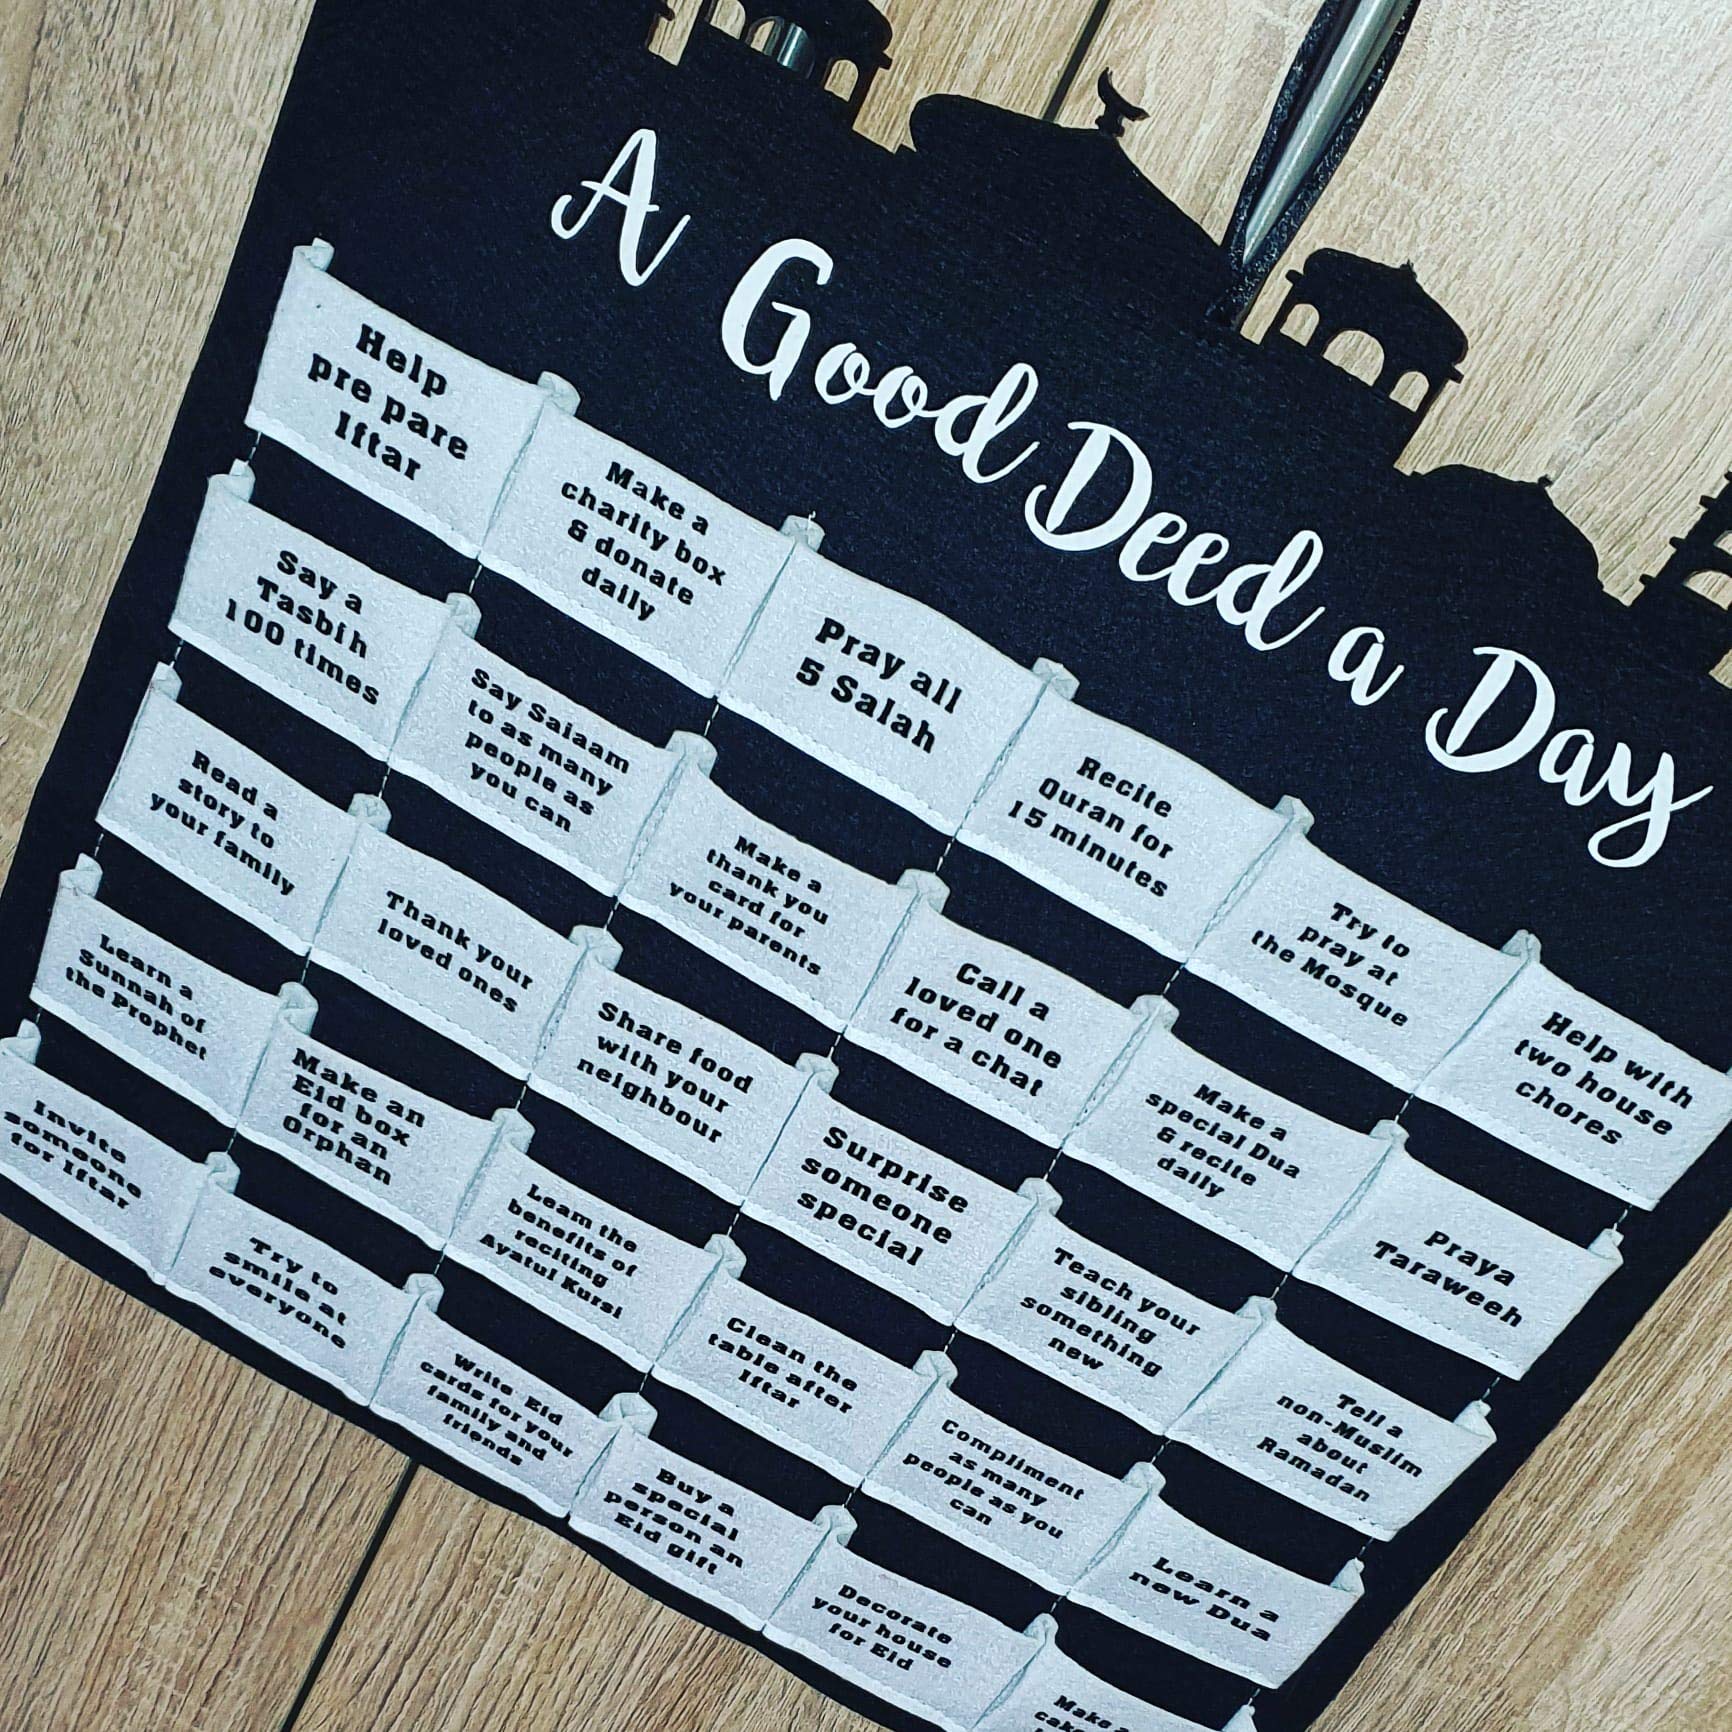 A Good Deed a Day
Help
pre pare
Iftar
Make a
charity box
& donate
daily
Pray all
5 Salah
Recite
Quran for
15 minutes
Try to
pray at
the Mosque
Help with
two house
chores
Say a
Tasbih
100 times
Say Salaam
to as many
people as
you can
Make a
thank you
card for
your parents
Call a
loved one
for a chat
Make a
special Dua
& recite
daily
Praya
Taraweeh
Read a
story to
your family
Thank your
loved ones
Share food
with your
neighbour
Surprise
someone
special
Teach your
sibling
something
new
Tell a
non-Muslim
about
Ramadan
Learn a
Sunnah of
the Prophet
Make an
Eid box
for an
Orphan
Learn the
benefits of
reciting
Ayatul Kursi
Clean the
table after
Iftar
Compliment
as many
people as you
can
Learn a
new Dua
Invite
someone
for Iftar
Try to
smile at
everyone
Write Eid
cards for your
family and
friends
Buy a
special
person an
Eid gift
Decorate
your house
for Eid
Make